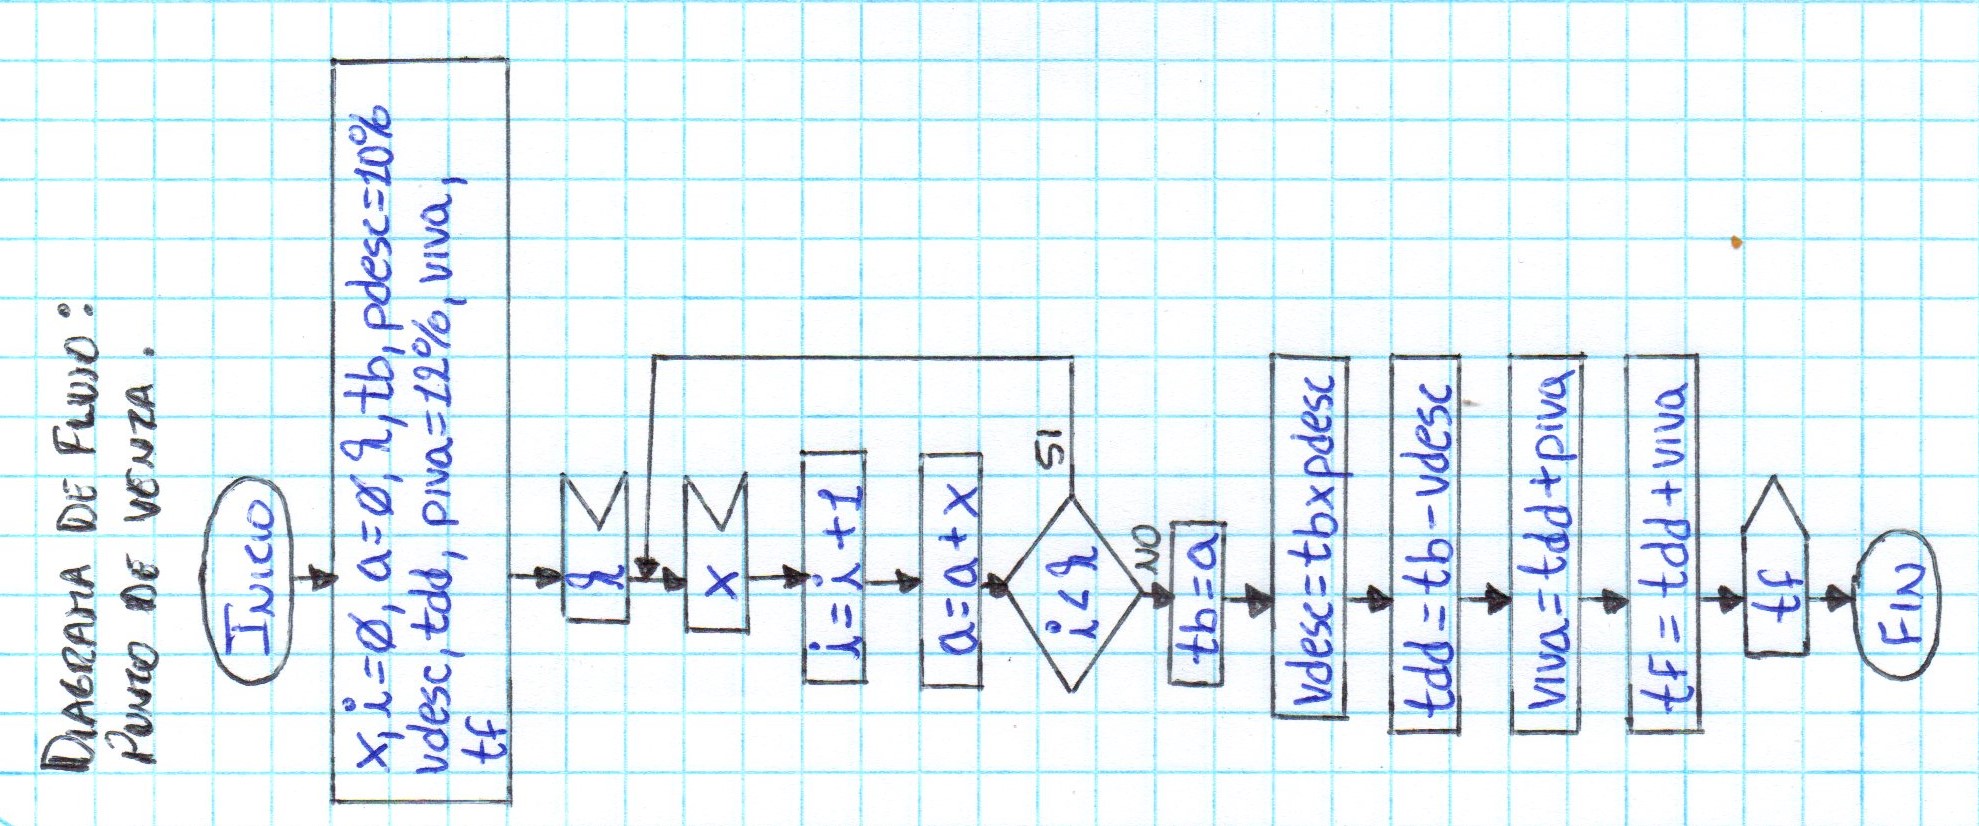 DIAGRAMA DE FLUJO:
PUNTO DE VENTA.
INICIO
x, i=0, a=0, k, tb, pdesc=10%
vdesc, tdd, piva=12%, viva,
tf
k
x
i=i+1
a=a+x
i<k
SI
NO
tb=a
vdesc=tbxpdesc
tdd=tb-vdesc
viva=tdd+piva
tf=tdd+viva
tf
FIN